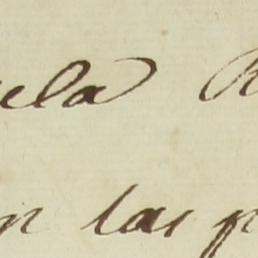 ela
n las p